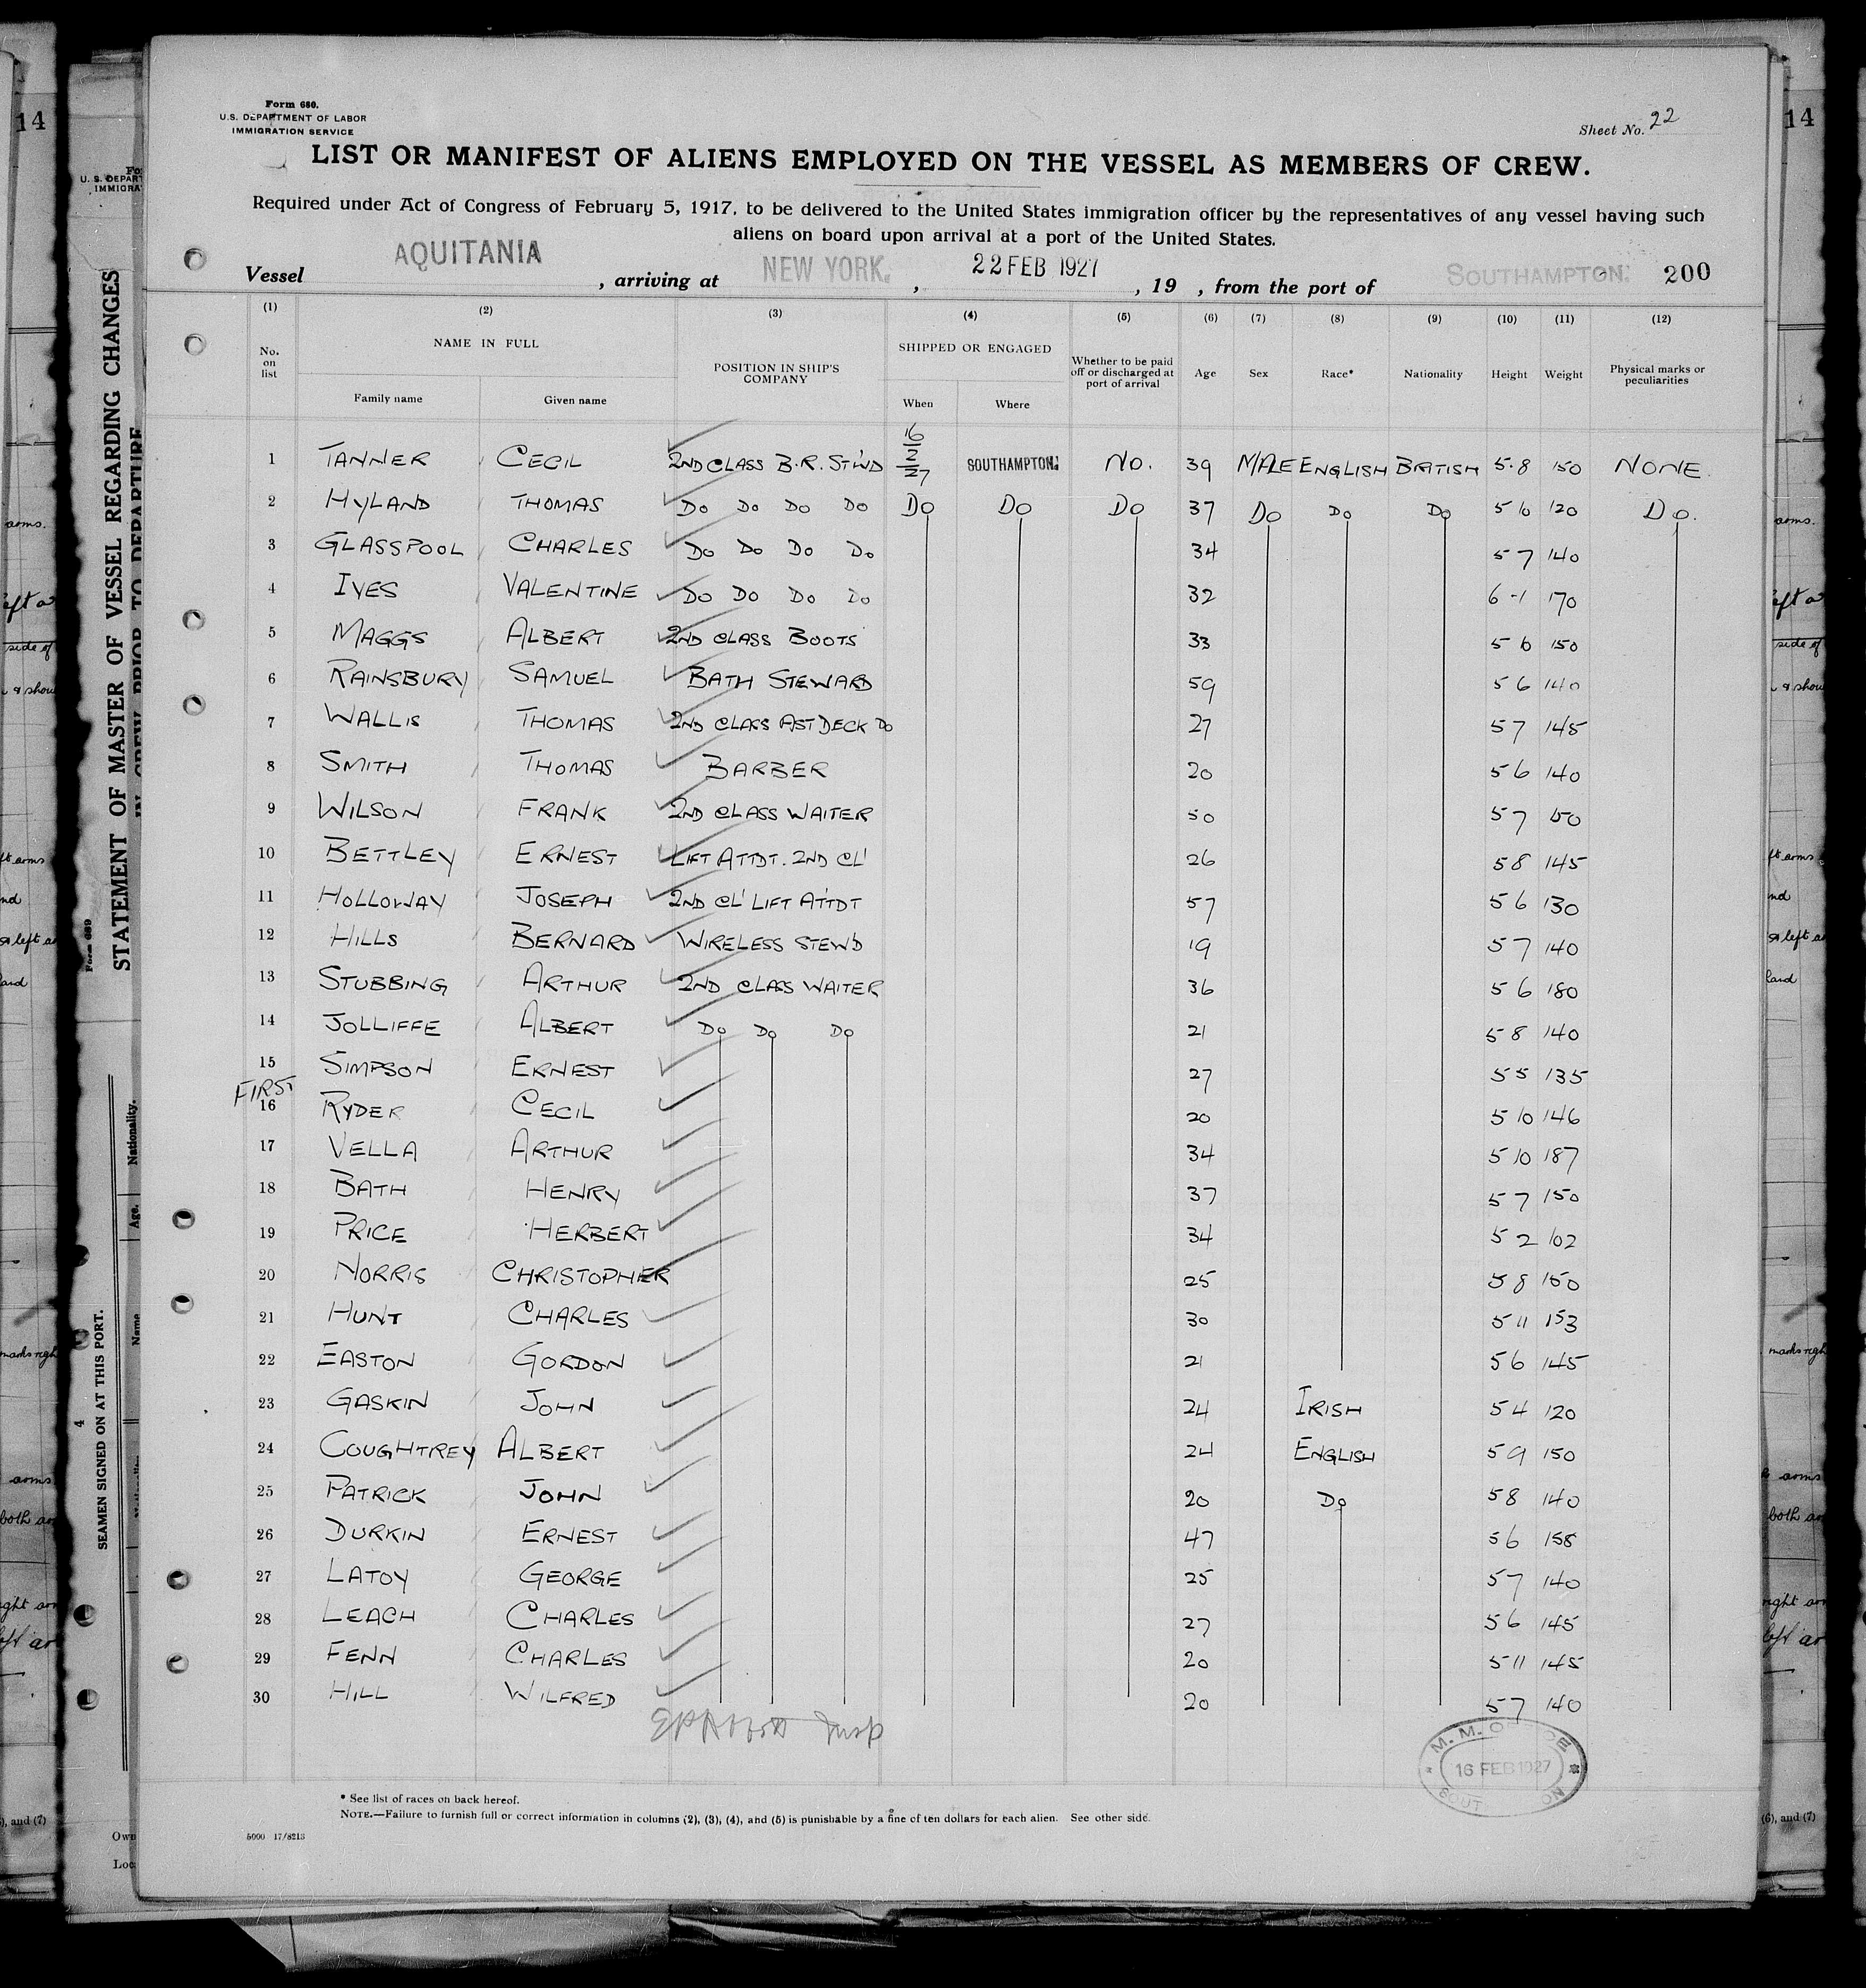 Form 680.
U.S. DEPARTMENT OF LABOR
IMMIGRATION SERVICE
Sheet No. 22
LIST OR MANIFEST OF ALIENS EMPLOYED ON THE VESSEL AS MEMBERS OF CREW.
Required under Act of Congress of February 5, 1917, to be delivered to the United States immigration officer by the representatives of any vessel having such
aliens on board upon arrival at a port of the United States.
Vessel AQUITANIA, arriving at NEW YORK, 22 FEB 1927, 19 , from the port of SOUTHAMPTON. 200
(1) (2) (3) (4) (5) (6) (7) (8) (9) (10) (11) (12)
No. on list NAME IN FULL POSITION IN SHIP'S COMPANY SHIPPED OR ENGAGED Whether to be paid off or discharged at port of arrival Age Sex Race* Nationality Height Weight Physical marks or peculiarities
Family name Given name When Where
1 TANNER CECIL 2ND CLASS B.R. STWD 16/2/27 SOUTHAMPTON. NO. 39 MALE ENGLISH BRITISH 5.8 150 NONE
2 HYLAND THOMAS DO DO DO DO DO DO DO 37 DO DO DO 5 10 120 DO.
3 GLASSPOOL CHARLES DO DO DO DO 34 5 7 140
4 IVES VALENTINE DO DO DO DO 32 6-1 170
5 MAGGS ALBERT 2ND CLASS BOOTS 33 5 6 150
6 RAINSBURY SAMUEL BATH STEWARD 59 5 6 140
7 WALLIS THOMAS 2ND CLASS AST DECK DO 27 5 7 145
8 SMITH THOMAS BARBER 20 5 6 140
9 WILSON FRANK 2ND CLASS WAITER 50 5 7 150
10 BETTLEY ERNEST LIFT ATTDT. 2ND CL' 26 5 8 145
11 HOLLOWAY JOSEPH 2ND CL' LIFT ATTDT 57 5 6 130
12 HILLS BERNARD WIRELESS STEWD 19 5 7 140
13 STUBBING ARTHUR 2ND CLASS WAITER 36 5 6 180
14 JOLLIFFE ALBERT DO DO DO 21 5 8 140
15 SIMPSON ERNEST 27 5 5 135
FIRST
16 RYDER CECIL 20 5 10 146
17 VELLA ARTHUR 34 5 10 187
18 BATH HENRY 37 5 7 150
19 PRICE HERBERT 34 5 2 102
20 NORRIS CHRISTOPHER 25 5 8 150
21 HUNT CHARLES 30 5 11 153
22 EASTON GORDON 21 5 6 145
23 GASKIN JOHN 24 IRISH 5 4 120
24 COUGHTREY ALBERT 24 ENGLISH 5 9 150
25 PATRICK JOHN 20 DO 5 8 140
26 DURKIN ERNEST 47 5 6 158
27 LATOY GEORGE 25 5 7 140
28 LEACH CHARLES 27 5 6 145
29 FENN CHARLES 20 5 11 145
30 HILL WILFRED 20 5 7 140
Insp
M. M. 16 FEB 1927
* See list of races on back hereof.
NOTE.—Failure to furnish full or correct information in columns (2), (3), (4), and (5) is punishable by a fine of ten dollars for each alien. See other side.
5000 17/8213
STATEMENT OF MASTER OF VESSEL REGARDING CHANGES
IN CREW PRIOR TO DEPARTURE
Form 689
SEAMEN SIGNED ON AT THIS PORT.
4
Nationality.
Age.
Name
14
U. S. DEPAR
IMMIGRA
Own
Loc
14
arms.
side of
ft arms
nd
left a
land
arms
both ar
ight ar
(6), and (7)